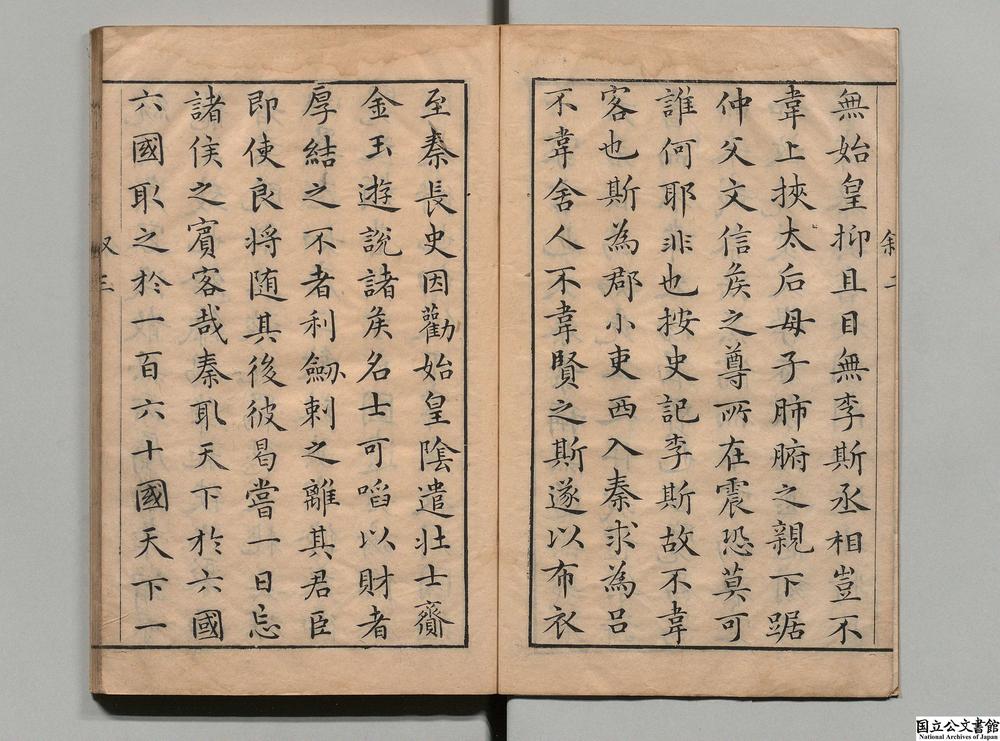 叙二
無始皇抑且目無李斯丞相豈不
韋上挾太后母子肺腑之親下踞
仲父文信矦之尊所在震恐莫可
誰何耶非也按史記李斯故不韋
客也斯為郡小吏西入秦求為呂
不韋舍人不韋賢之斯遂以布衣
至秦長史因勸始皇陰遣壯士齎
金玉遊說諸矦名士可啗以財者
厚結之不者利劒刺之離其君臣
即使良将随其後彼曷嘗一日忘
諸侯之賓客哉秦取天下於六國
六國取之於一百六十國天下一
叙三
国立公文書館
National Archives of Japan